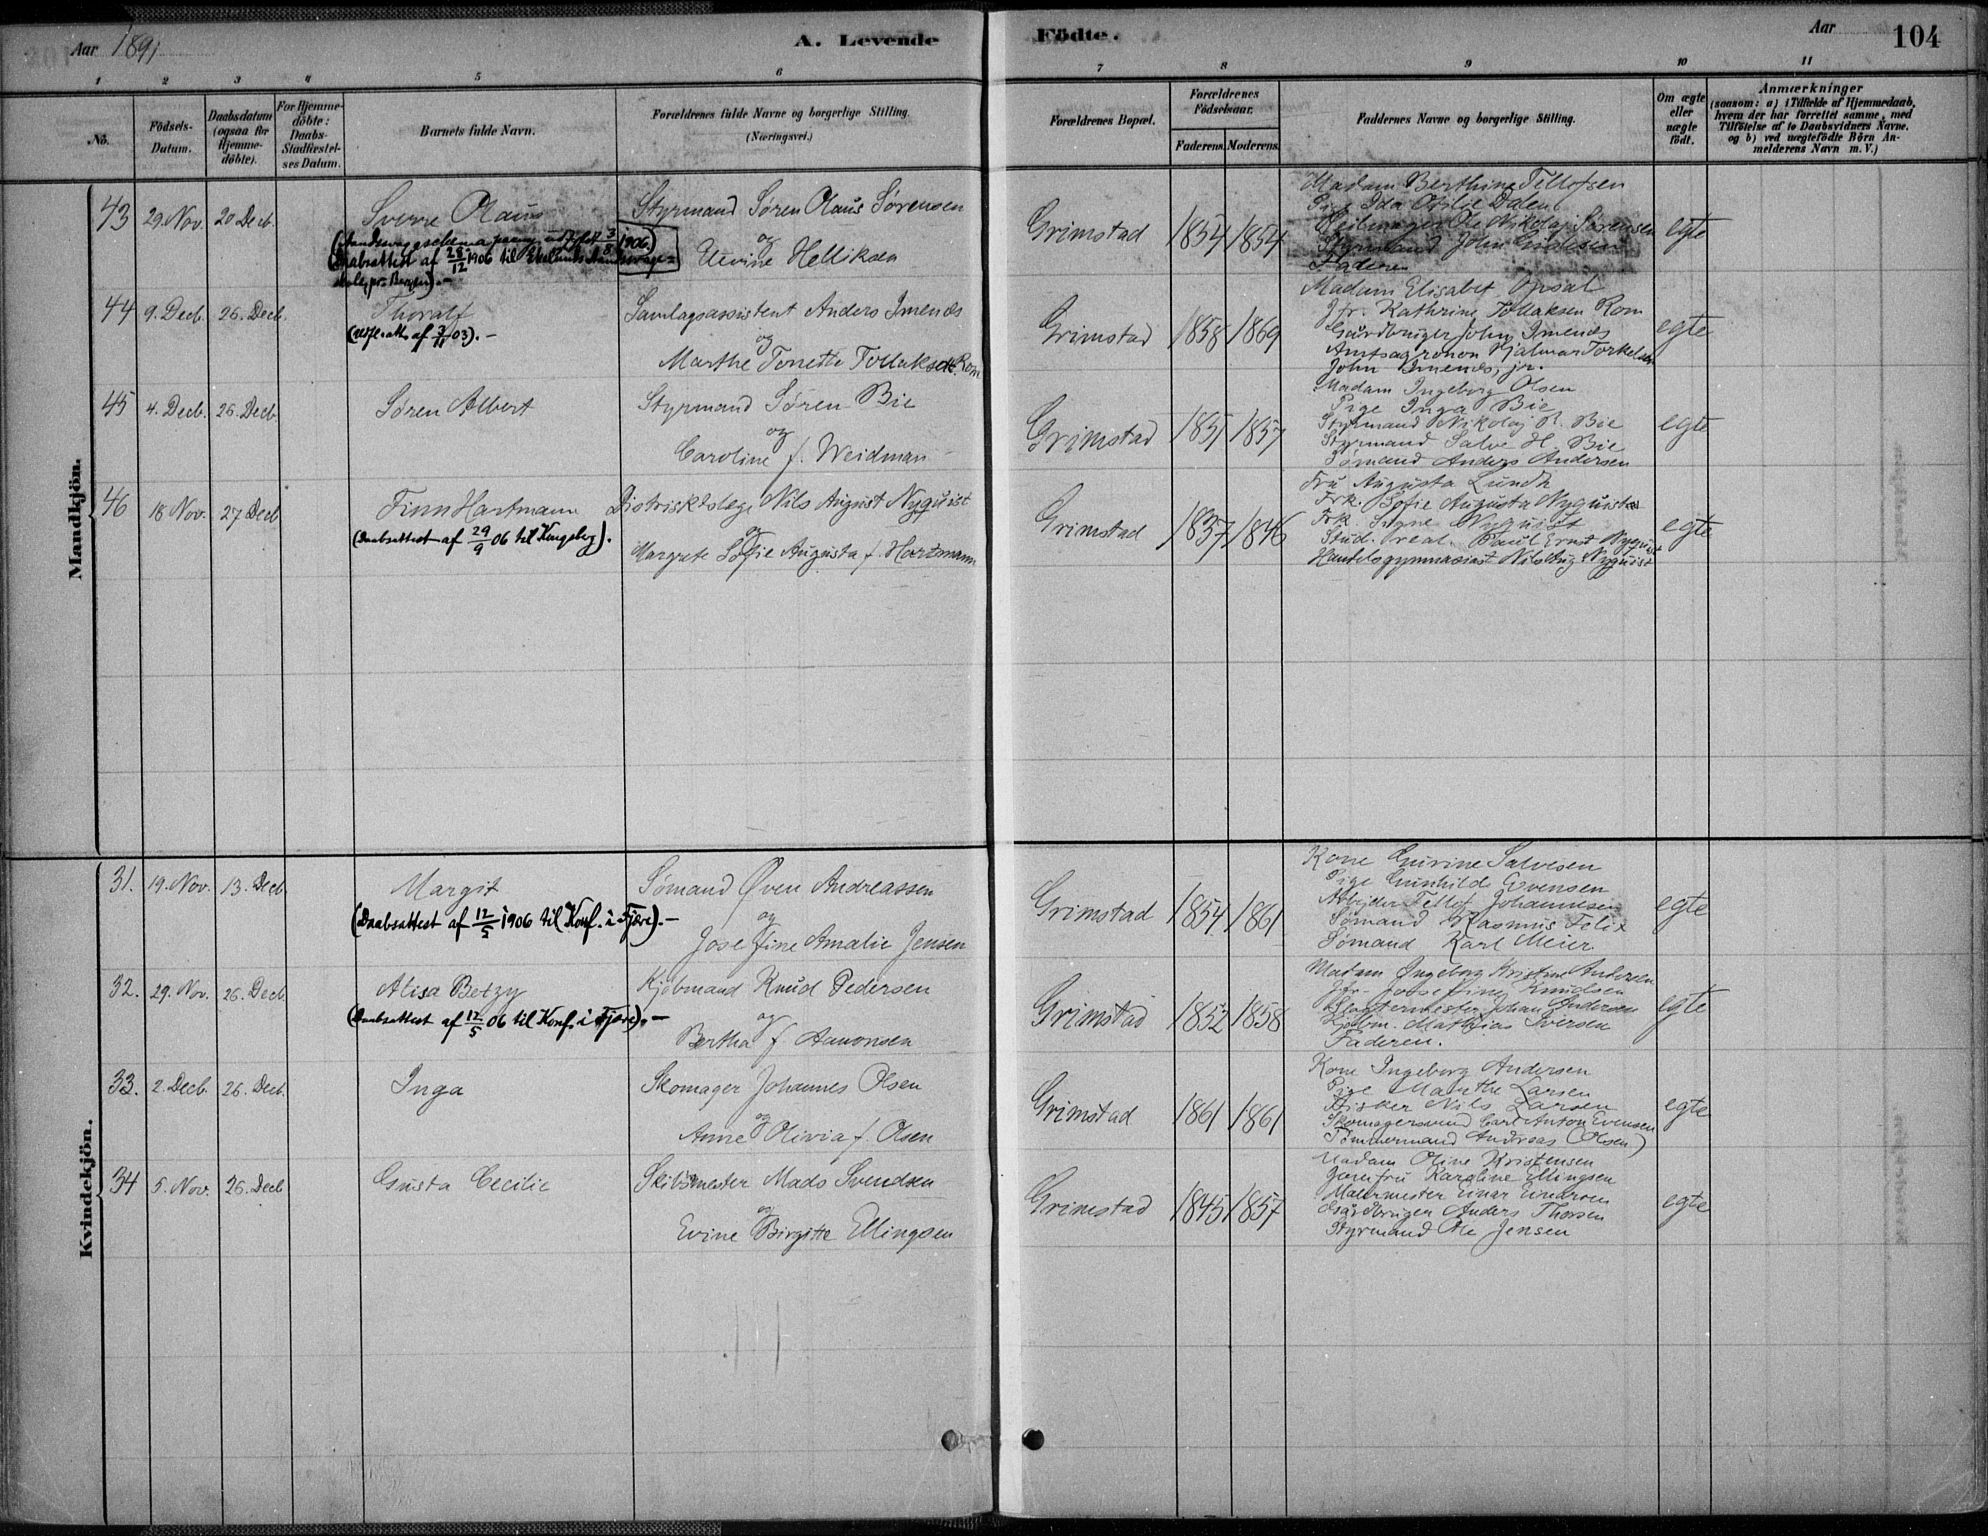 Aar 1891
A. Levende
Födte.
Aar
104
1 2 3 4 5 6 7 8 9 10 11
No.
Födsels-
Datum.
Daabsdatum
(ogsaa for
Hjemme-
döbte).
For Hjemme-
döbte:
Daabs-
Stadfæstel-
ses Datum.
Barnets fulde Navn.
Forældrenes fulde Navne og borgerlige Stilling.
(Næringsvei.)
Forældrenes Bopæl.
Forældrenes
Födselsaar.
Faderens. Moderens.
Faddernes Navne og borgerlige Stilling.
Om ægte
eller
uægte
födt.
Anmærkninger
(saasom: a) i Tilfælde af Hjemmedaab,
hvem der har forrettet samme, med
Tilföielse af to Daabsvidners Navne,
og b) ved uægtefödte Börn An-
melderens Navn m. V.)
Mandkjön.
43 29 Nov. 20 Decb.
Sverre Olaus
af 28/12 1906 til
Bergen).-
Styrmand Søren Olaus Sørensen
og
Helliksen
Grimstad 1854 1854
Madam Berthine Tellefsen
Pige Ida Otilie Dalen
Seilmager Ole Nikolaj Sørensen
Styrmand John
Faderen
egte
44 9. Decb. 26. Decb.
Thoralf
Samlagsassistent Anders Imenæs
og
Marthe Tonette Tollaksdt. Rom
Grimstad 1858 1869
Madam Elisabet Opsal
Jfr. Kathrine Tollaksen Rom
Gårdbruger John Imenæs
Amtsagronon Hjalmar Torkelsen
John Imenæs, jr.
egte
45 4. Decb. 26. Decb
Søren Albert
Styrmand Søren Bie
og
Caroline f. Weidman
Grimstad 1851 1857
Madam Ingeborg Olsen
Pige Inga Bie
Styrmand Nikolaj R. Bie
Styrmand Salve H. Bie
Sømand Anders Andersen
egte
46 18 Nov. 27 Decb
Finn Hartmann
(Daabsattest af 29/9 06 til Kongsberg).
Distriktslæge Nils August Nyquist
og
Margrete Sofie Augusta f. Hartmann
Grimstad 1837 1846
Fru Augusta Lundh
Frk. Sofie Augusta Nyquist
Frk. Signe Nyquist
Stud. real. Paul Ernst Nyquist
Handelsgymnasiast Nils Aug Nyquist
egte
Kvindekjön.
31. 19. Nov. 13. Decb
Margit
(Daabsattest af 12/5 1906 til Konf. i Fjære).-
Sømand Øven Andreassen
og
Josefine Amalie Jensen
Grimstad 1854 1861
Kone Gurine Salvesen
Pige Gunhilde Evensen
Arbeider Tellef Johannesen
Sømand Rasmus Felix
Sømand Karl Meier
egte
32. 29. Nov. 26. Decb.
Alisa Betzy
(Daabsattest af 12/5 06 til Konf. i Fjære).-
Kjøbmand Knud Pedersen
og
Bertha f. Aanonsen
Grimstad 1852 1858
Madam Ingeborg Kristine Andersen
Jfr. Josefine Knudsen
Slagtermester Johan Andersen
Kjøbm. Mathias Iversen
Faderen.
egte
33. 2. Decb 26. Decb.
Inga
Skomager Johannes Olsen
og
Anne Olivia f. Olsen
Grimstad 1861 1861
Kone Ingeborg Andersen
Pige Marthe Larsen
Fisker Nils Larsen
Skomagersvend Carl Anton Evensen
Tømmermand Andreas (Olsen)
egte
34 5. Nov. 26. Decb
Gusta Cecilie
Skibsmester Mads Svendsen
og
Evine Birgitte Ellingsen
Grimstad 1845 1857
Madam Oline Kristensen
Jomfru Karoline Ellingsen
Malermester Einar Einersen
Gårdbruger Anders Thorsen
Styrmand Ole Jensen
egte